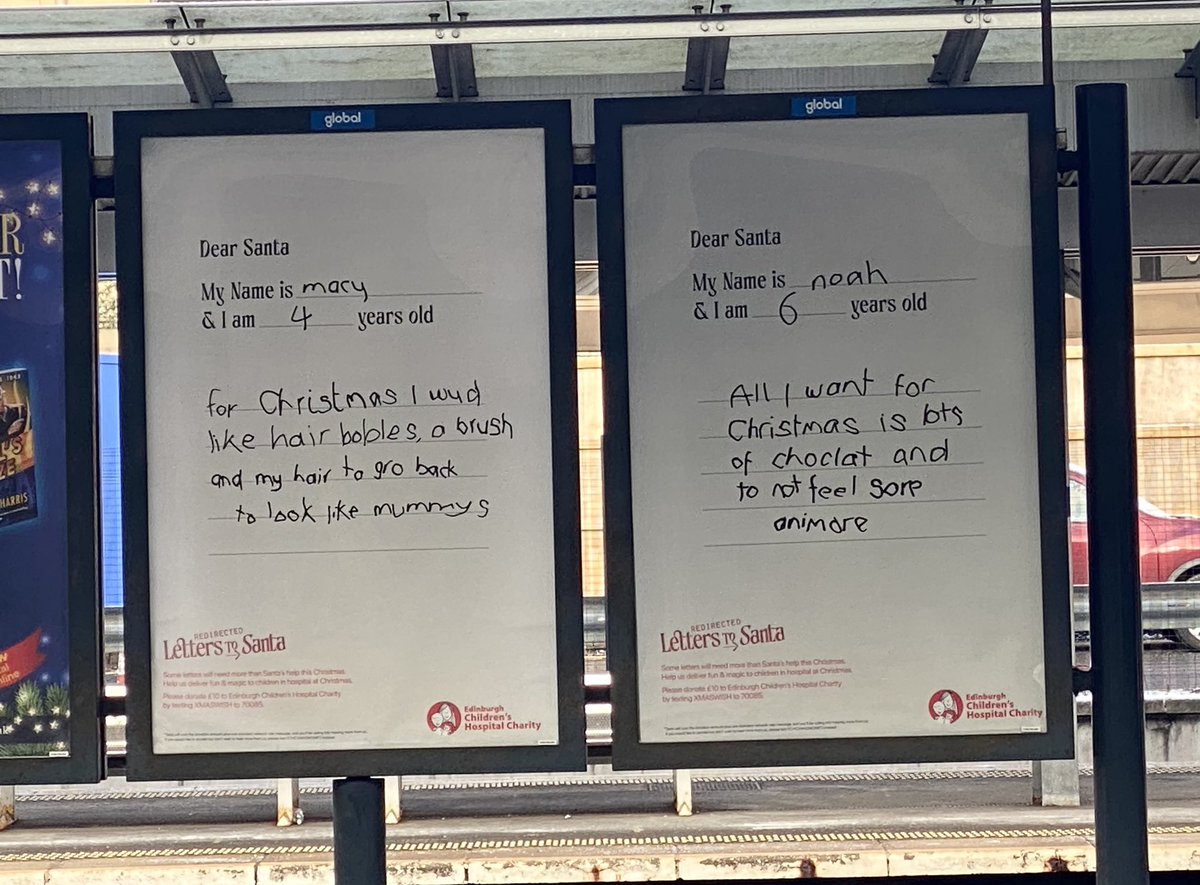 R
T!
HARRIS
global
Dear Santa
My Name is macy
& I am 4 years old
for Christmas I wud
like hair bobles, a brush
and my hair to gro back
to look like mummys
REDIRECTED
Letters To Santa
Some letters will need more than Santa's help this Christmas.
Help us deliver fun & magic to children in hospital at Christmas.
Please donate £10 to Edinburgh Children's Hospital Charity
by texting XMASWISH to 70085.
Edinburgh
Children's
Hospital Charity
global
Dear Santa
My Name is noah
& I am 6 years old
All I want for
Christmas is lots
of choclat and
to not feel sore
animore
REDIRECTED
Letters To Santa
Some letters will need more than Santa's help this Christmas.
Help us deliver fun & magic to children in hospital at Christmas.
Please donate £10 to Edinburgh Children's Hospital Charity
by texting XMASWISH to 70085.
Edinburgh
Children's
Hospital Charity